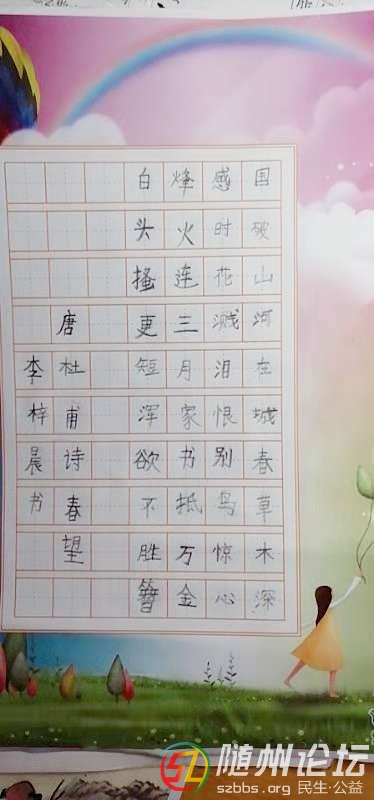 国破山河在城春草木深
感时花溅泪恨别鸟惊心
烽火连三月家书抵万金
白头搔更短浑欲不胜簪
唐杜甫诗春望
李梓晨书
随州论坛
szbbs.org 民生·公益